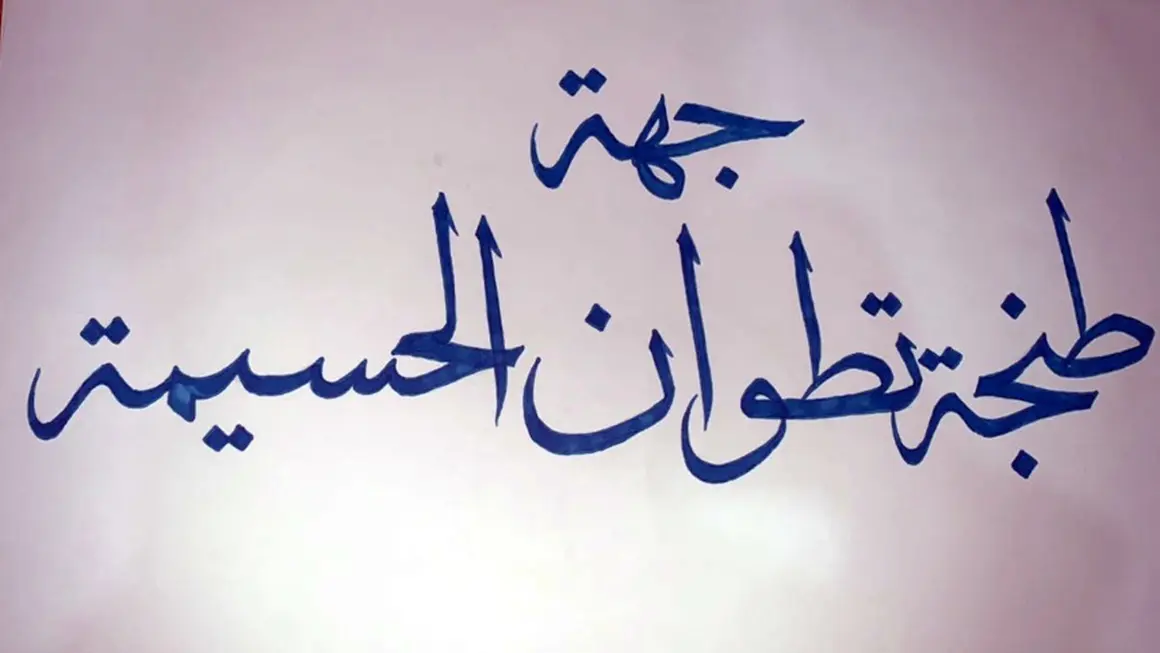 جهة
طنجة تطوان الحسيمة